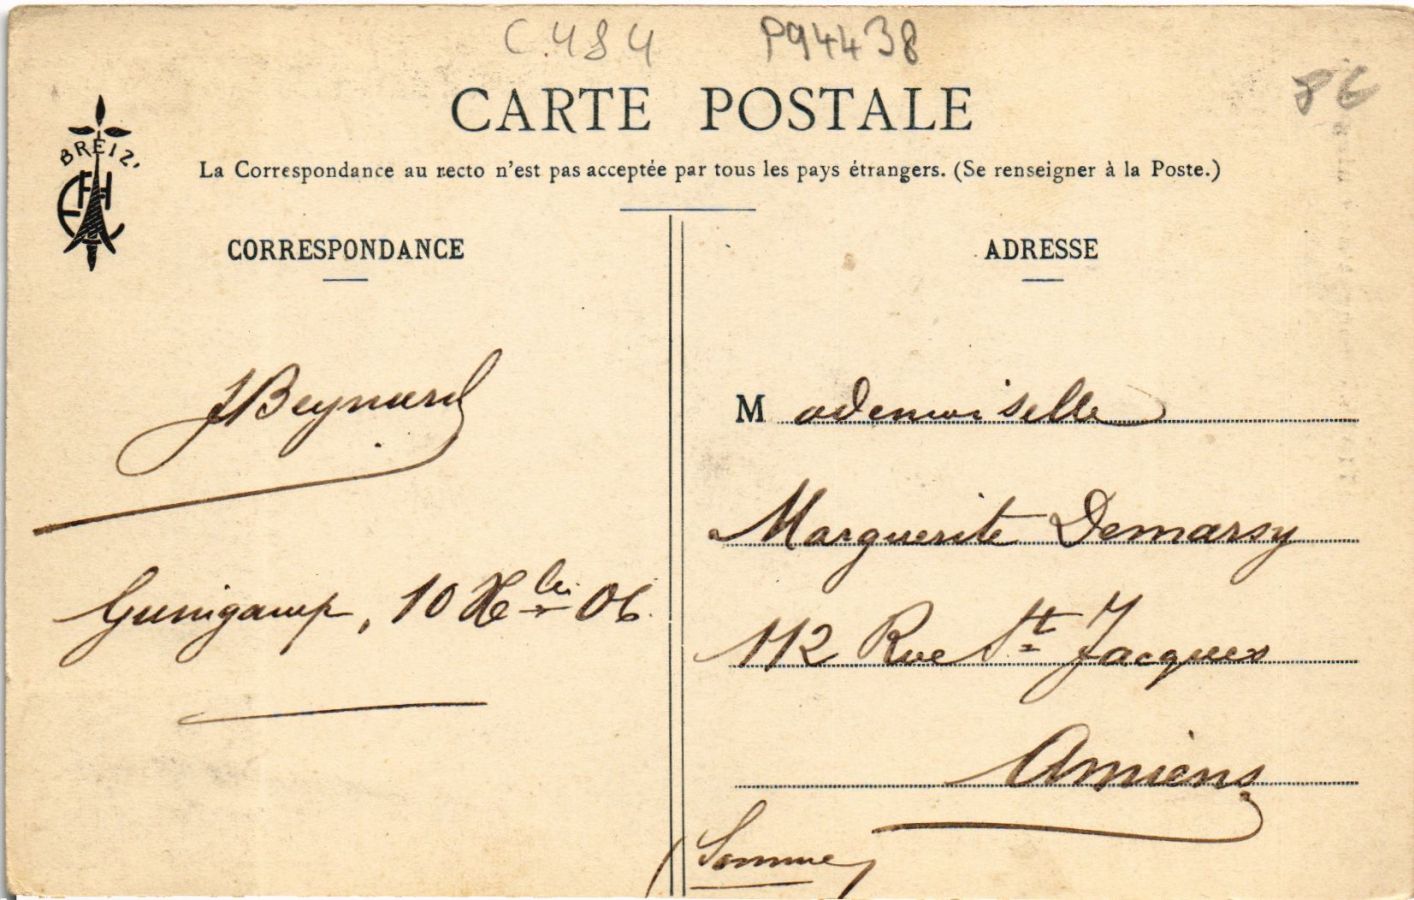 C.484 P94438
8€
CARTE POSTALE
BREIZ
La Correspondance au recto n'est pas acceptée par tous les pays étrangers. (Se renseigner à la Poste.)
CORRESPONDANCE
JBeynard
Guingamp, 10 Xbre 06.
ADRESSE
Mademoiselle
Marguerite Demarsy
112 Rue St Jacques
Amiens
(Somme)